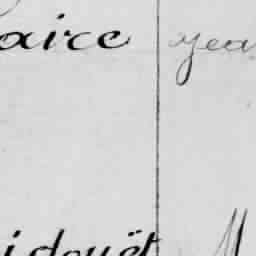 aire yea
idouët M